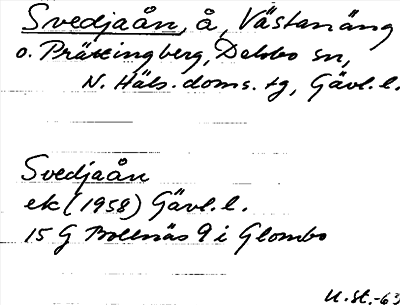 Svedjaån, å, Västanäng
o. Prästingberg, Delsbo sn,
N. Häls. doms. tg, Gävl. l.
Svedjaån
ek (1958) Gävl. l.
15 G Bollnäs 9 i Glombo
U.St.-63